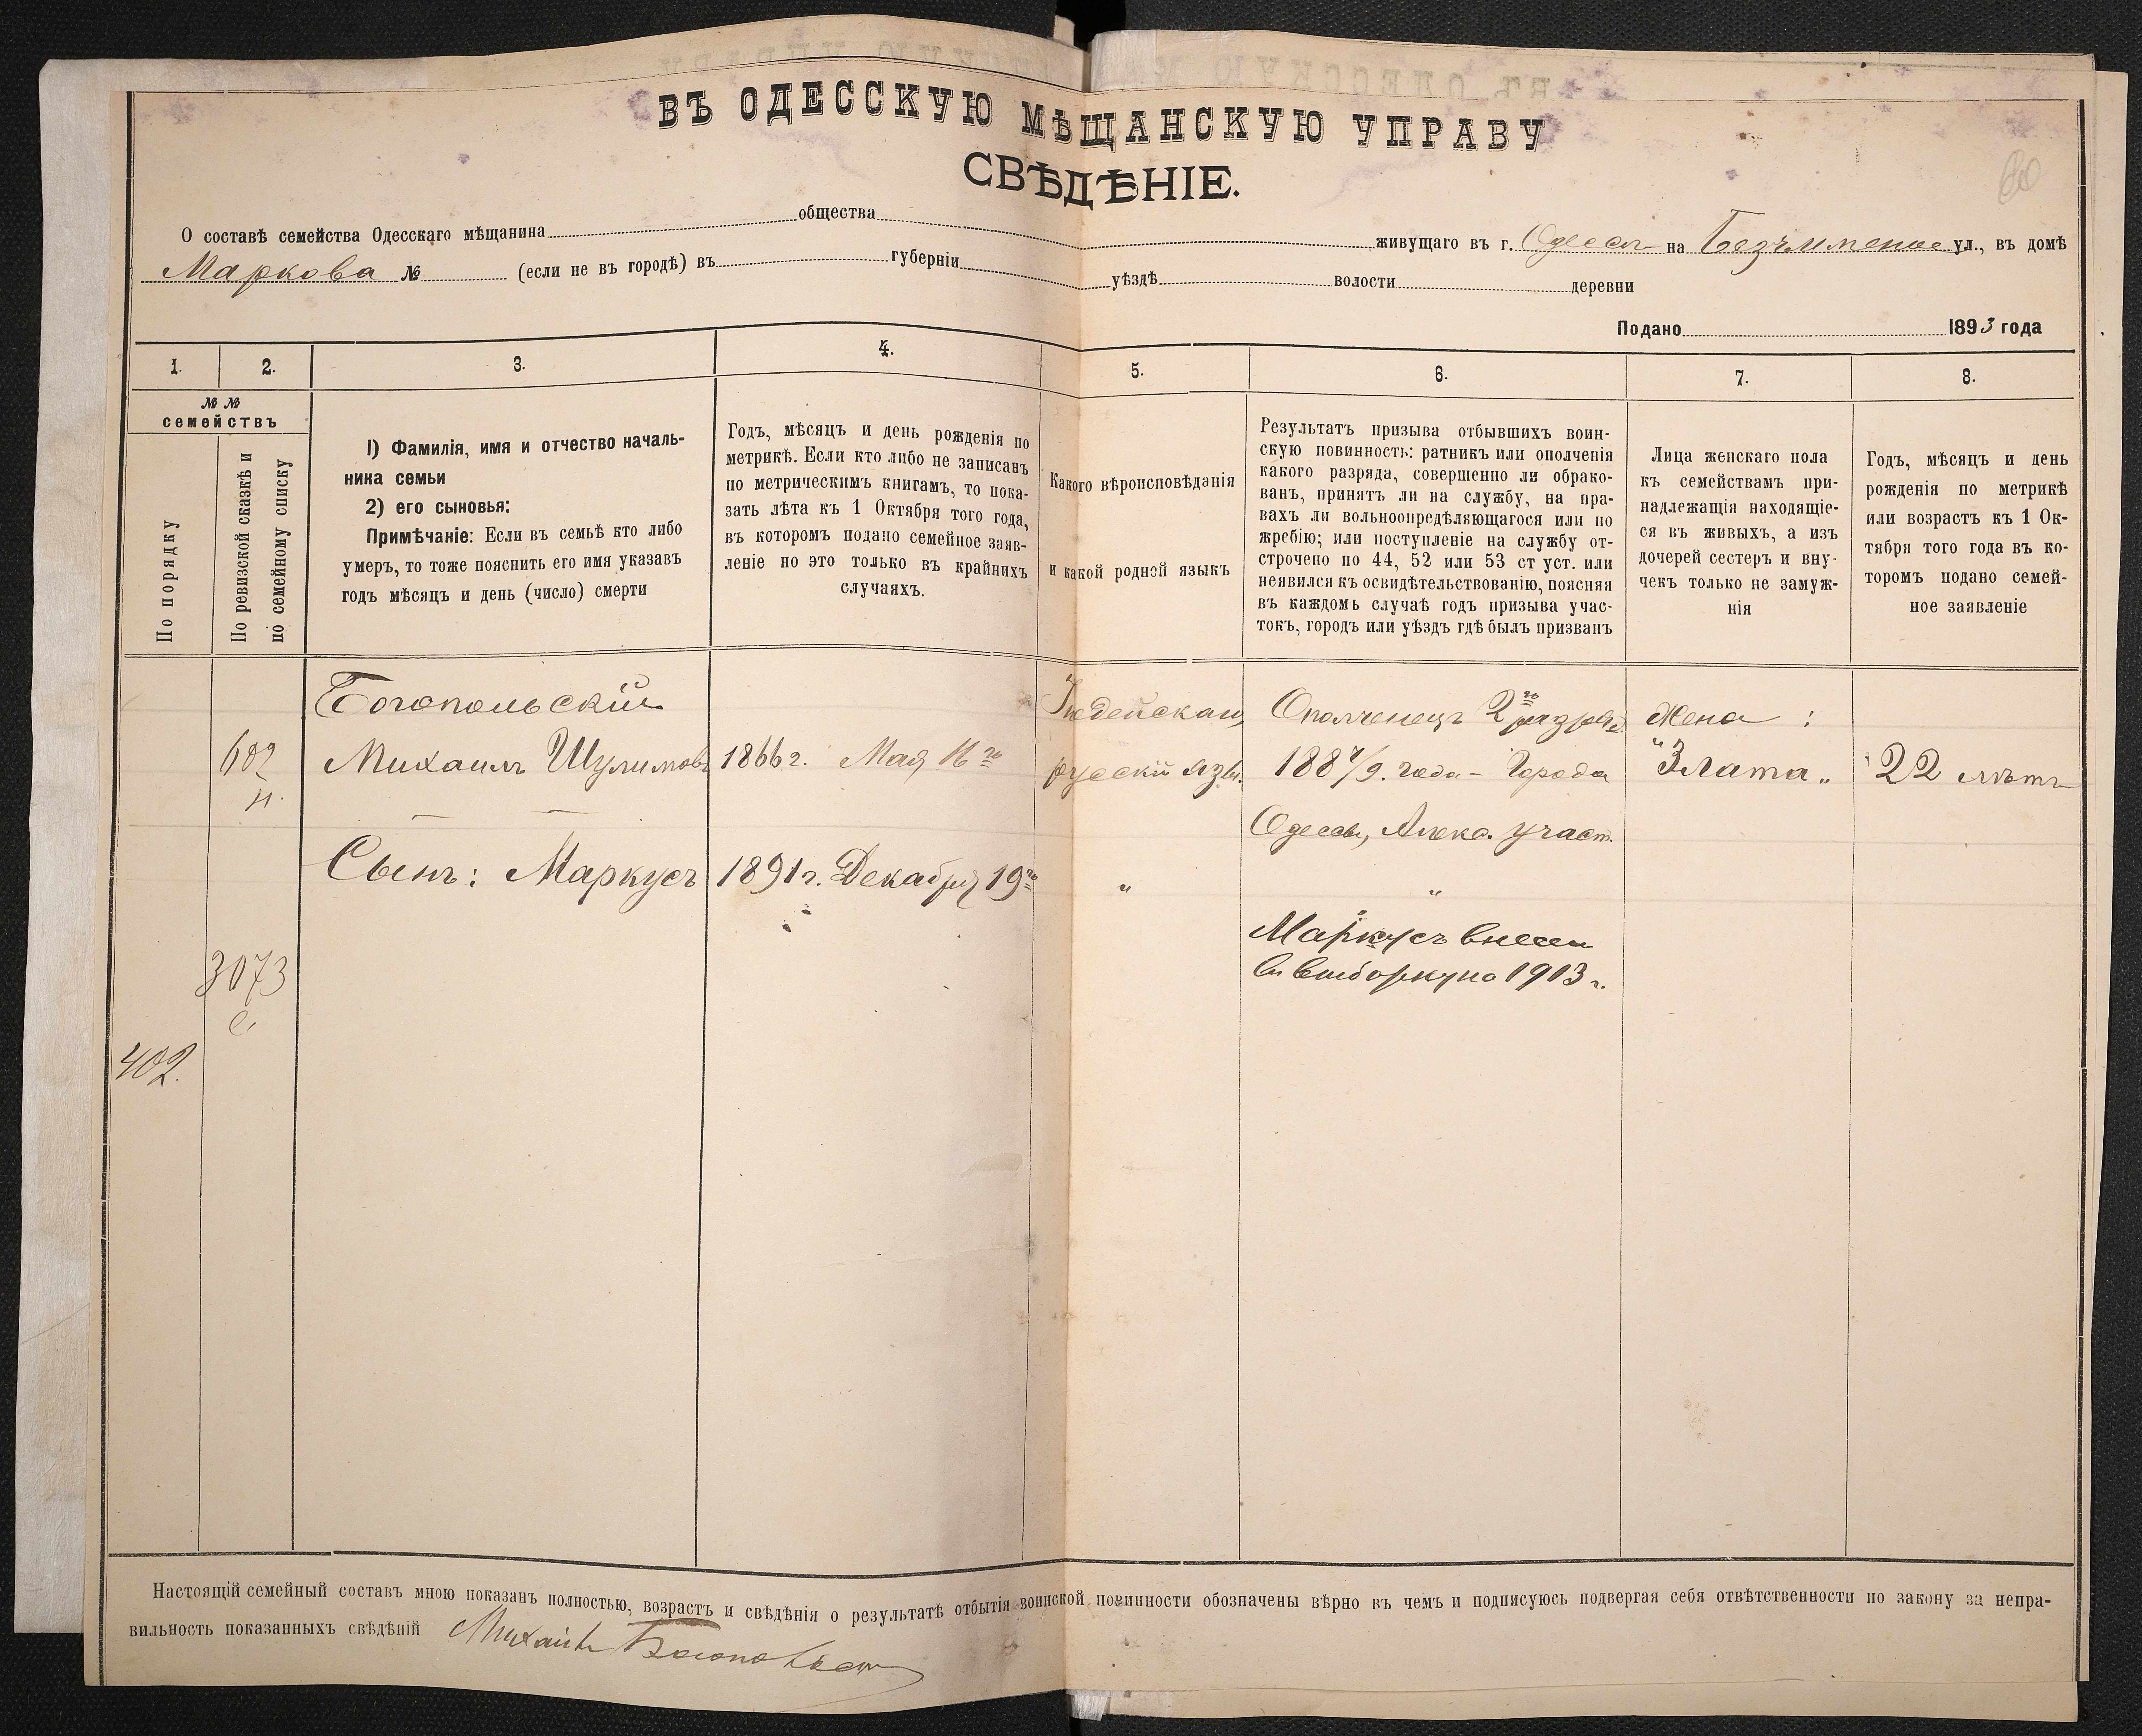 ВЪ ОДЕССКУЮ МѢЩАНСКУЮ УПРАВУ
СВѢДѢНІЕ.
О составѣ семейства Одесскаго мѣщанина общества живущаго въ г. Одессѣ на Безъименной ул., въ домѣ
Маркова № (если не въ городѣ) въ губерніи уѣздѣ волости деревни
Подано 1893 года
1. 2. 3. 4. 5. 6. 7. 8.
№ №
семействъ
По порядку
По ревизской сказкѣ и
по семейному списку
1) Фамилія, имя и отчество началь-
ника семьи
2) его сыновья:
Примѣчаніе: Если въ семьѣ кто либо
умеръ, то тоже пояснить его имя указавъ
годъ мѣсяцъ и день (число) смерти
Годъ, мѣсяцъ и день рожденія по
метрикѣ. Если кто либо не записанъ
по метрическимъ книгамъ, то пока-
зать лѣта къ 1 Октября того года,
въ которомъ подано семейное заяв-
леніе но это только въ крайнихъ
случаяхъ.
Какого вѣроисповѣданія
и какой родной языкъ
Результатъ призыва отбывшихъ воин-
скую повинность: ратникъ или ополченія
какого разряда, совершенно ли обрако-
ванъ, принятъ ли на службу, на пра-
вахъ ли вольноопредѣляющагося или по
жребію; или поступленіе на службу от-
строчено по 44, 52 или 53 ст уст. или
неявился къ освидѣтельствованію, поясняя
въ каждомъ случаѣ годъ призыва учас-
токъ, городъ или уѣздъ гдѣ былъ призванъ
Лица женскаго пола
къ семействамъ при-
надлежащія находящіе-
ся въ живыхъ, а изъ
дочерей сестеръ и вну-
чекъ только не замуж-
нія
Годъ, мѣсяцъ и день
рожденія по метрикѣ
или возрастъ къ 1 Ок-
тября того года въ ко-
торомъ подано семей-
ное заявленіе
Богопольскій
602
н.
Михаилъ Шулимовъ
1866 г. Мая 16го
Іюдейскаго,
русскій язы.
Ополченецъ 2го разряд.
1887/9. года - Города
Одессы, Алекс. участ.
Жена :
"Злата"
22 лѣтъ
Сынъ: Маркусъ
1891 г. Декабря 19го
"
"
Маркусъ внесен
въ выборку на 1913 г.
3073
с.
402.
Настоящій семейный составъ мною показанъ полностью, возрастъ и свѣдѣнія о результатѣ отбытія воинской повинности обозначены вѣрно въ чемъ и подписуюсь подвергая себя отвѣтственности по закону за непра-
вильность показанныхъ свѣдѣній Михаилъ